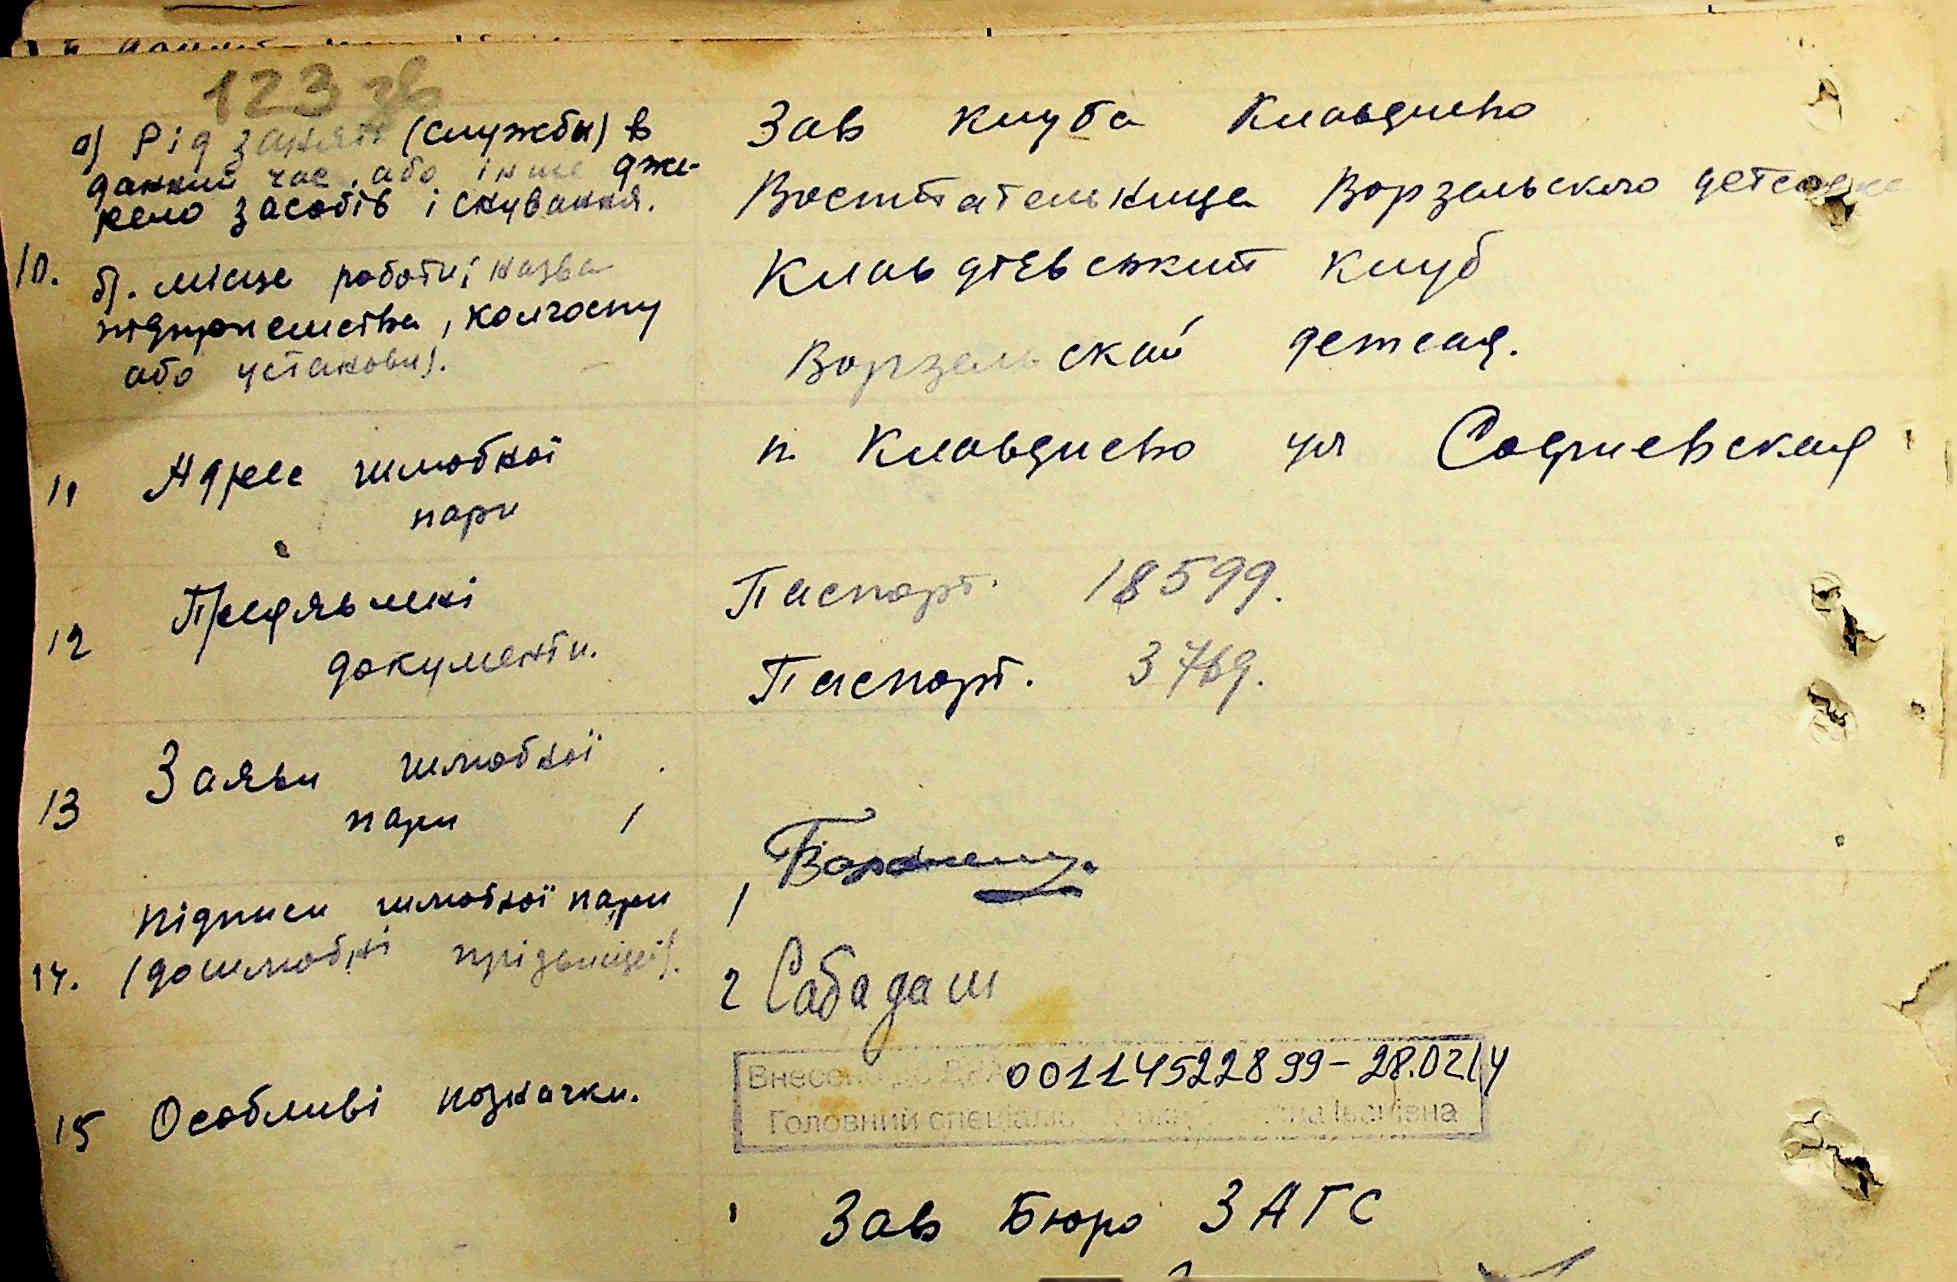 123 зв
а) Рід занять (службы) в Зав клуба Клавдиево
данний час, або інше дже-
рело засобів існування. Воспитательница Ворзельского детсада
10. б). місце роботи; назва Клавдієвский клуб
підприємства, колгоспу
або установи). Ворзельский детсад.
11 Адрес шлюбної п. Клавдиево ул
пари
12 Предявлені Паспорт. 18599.
документи. Паспорт. 3769.
13 Заяви шлюбної
пари
Підписи шлюбної пари 1
14. (дошлюбні прізвища). 2 Сабадаш
Внесено до 00114522899-28.02.14
15 Особливі позначки. Головний Іванівна
Зав Бюро ЗАГС